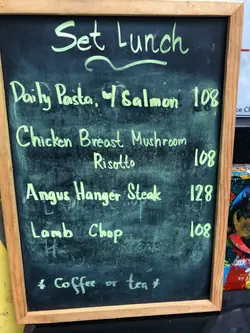 Set Lunch
Daily Pasta, w/ Salmon 108
Chicken Breast Mushroom
Risotto 108
Angus Hanger Steak 128
Lamb Chop 108
* Coffee or tea *